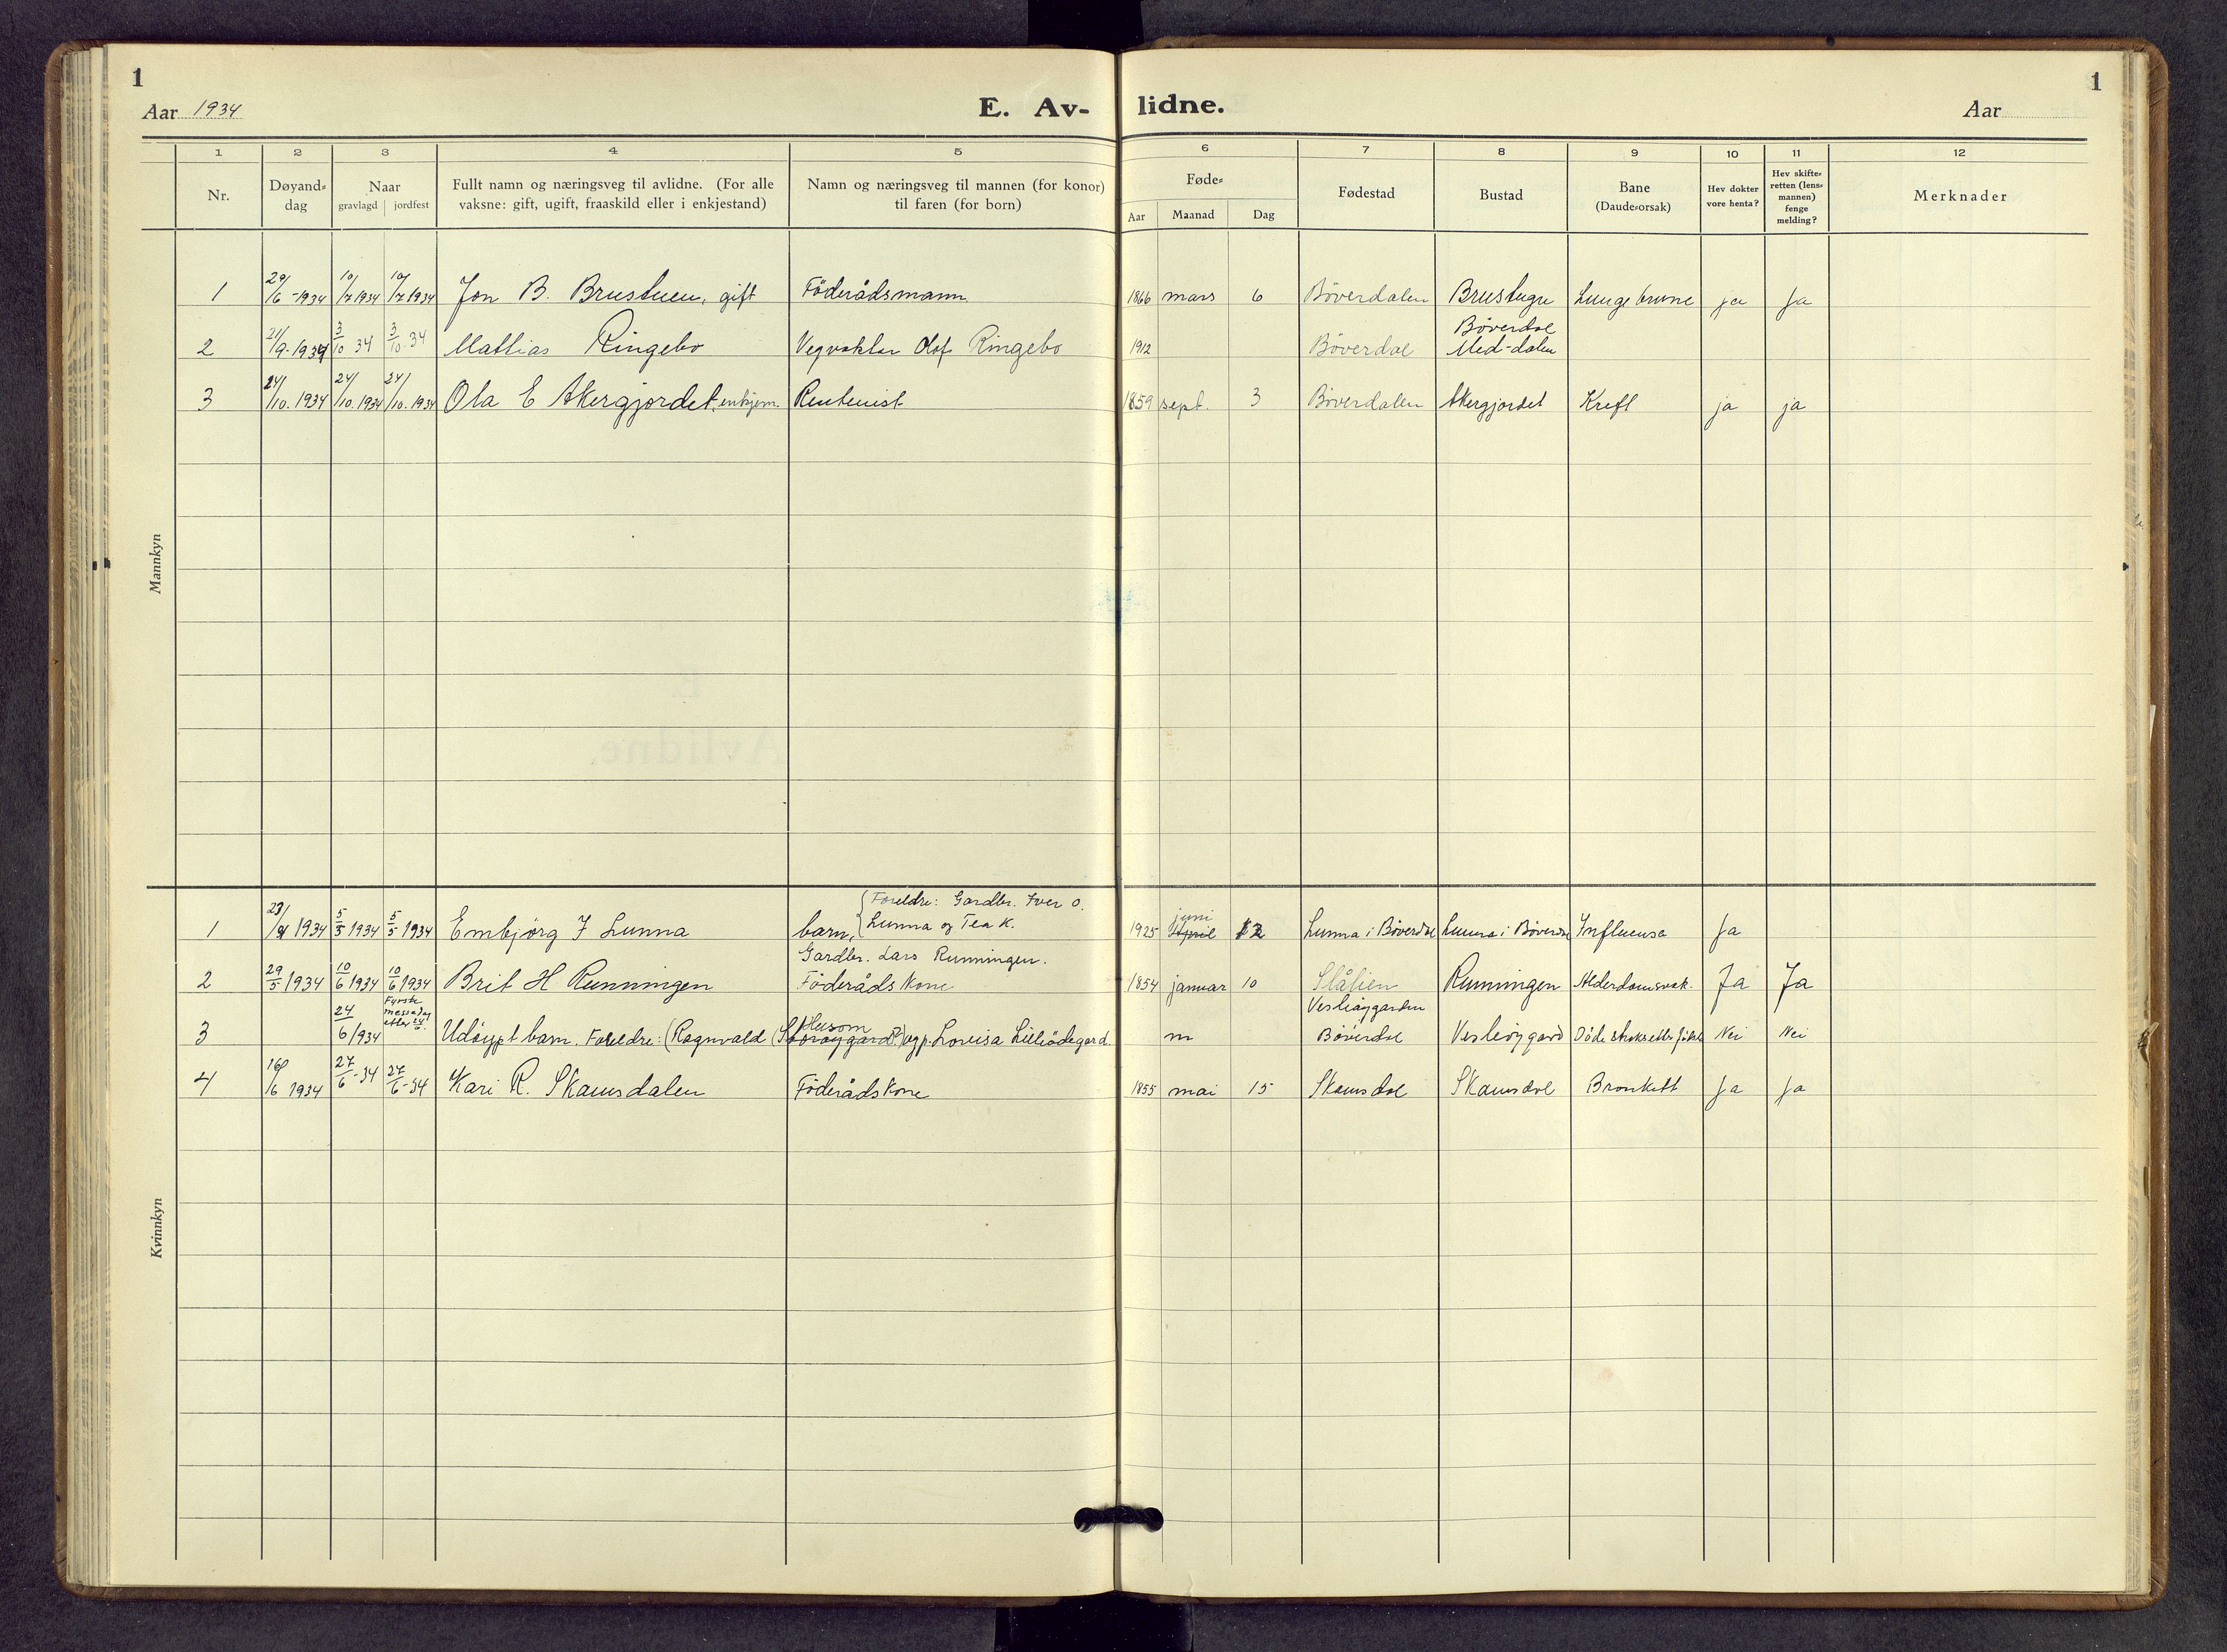 1
Aar 1934
E. Av-lidne.
Aar
1
1 2 3 4 5 6 7 8 9 10 11 12
Nr.
Døyand-dag
Naar
gravlagd jordfest
Fullt namn og næringsveg til avlidne. (For alle
vaksne: gift, ugift, fraaskild eller i enkjestand)
Namn og næringsveg til mannen (for konor)
til faren (for born)
Føde-
Aar Maanad Dag
Fødestad
Bustad
Bane
(Daude-orsak)
Hev dokter
vore henta?
Hev skifte-
retten (lens-
mannen)
fenge
melding?
Merknader
Mannkyn
1 29/6-1934 10/7 1934 10/7 1934 Jon B. Brustuen, gift Föderådsmann 1866 mars 6 Böverdalen Brustugu Lungebrune ja Ja
2 21/9-1934 3/10 34 3/10 34 Mattias Ringebo Vegvaktar Olaf Ringebo 1912 Böverdal Böverdal
Med-dalen
3 24/10. 1934 24/10. 1934 24/10. 1934 Ola E Akergjordet, enkjem. Rentenist 1859 sept. 3 Böverdalen Akergjordet Kreft ja ja
Kvinnkyn
Foreldre: Gardbr. Iver O.
1 23/4 1934 5/5 1934 5/5 1934 Embjörg I Lunna barn, Lunna og Tea K. 1925 juni April 12 Lunna i Böverdal Lunna i Böverdal Influensa Ja
Gardbr. Lars Runningen.
2 29/5 1934 10/6 1934 10/6 1934 Brit H Runningen Föderåds kone 1854 januar 10 Slålien Runningen Alderdomsvak. Ja Ja
Fyrste
messedag
etter 24/6.
Vesleöygarden
3 24/6 1934 Udöypt barn. Foreldre: (Ragnvald Husom og p. Lovisa Lilleödegard. m Böverdal Vesleöygard Döde straks etter födsel Nei Nei
4 16/6 1934 27/6-34 27/6-34 Kari R. Skamsdalen Föderådskone 1855 mai 15 Skamsdal Skamsdal Bronkitt Ja Ja